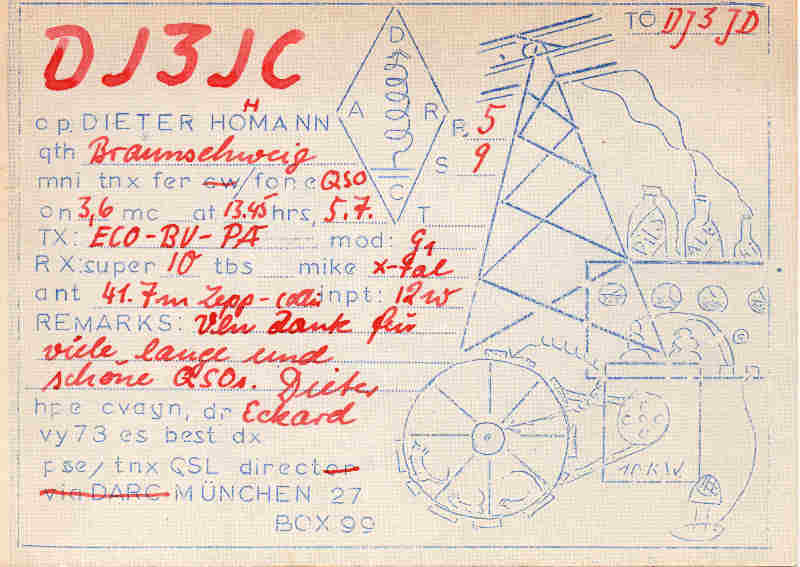 DJ3JC
TO DJ3JD
D
A R
C
op. DIETER HOHMANN
R 5
qth Braunschweig
S 9
mni tnx fer cw/fone QSO
on 3,6 mc at 13.45 hrs, 5.7.
T
TX: ECO-BU-PA mod: G1
RX: super 10 tbs mike x-tal
ant 41.7m Zepp- inpt: 12w
REMARKS: Vln Dank für
viele, lange und
schöne QSOs. Dieter
hpe cuagn, dr Eckard
vy 73 es best dx
pse/tnx QSL direct or
via DARC MÜNCHEN 27
BOX 99
10 KW